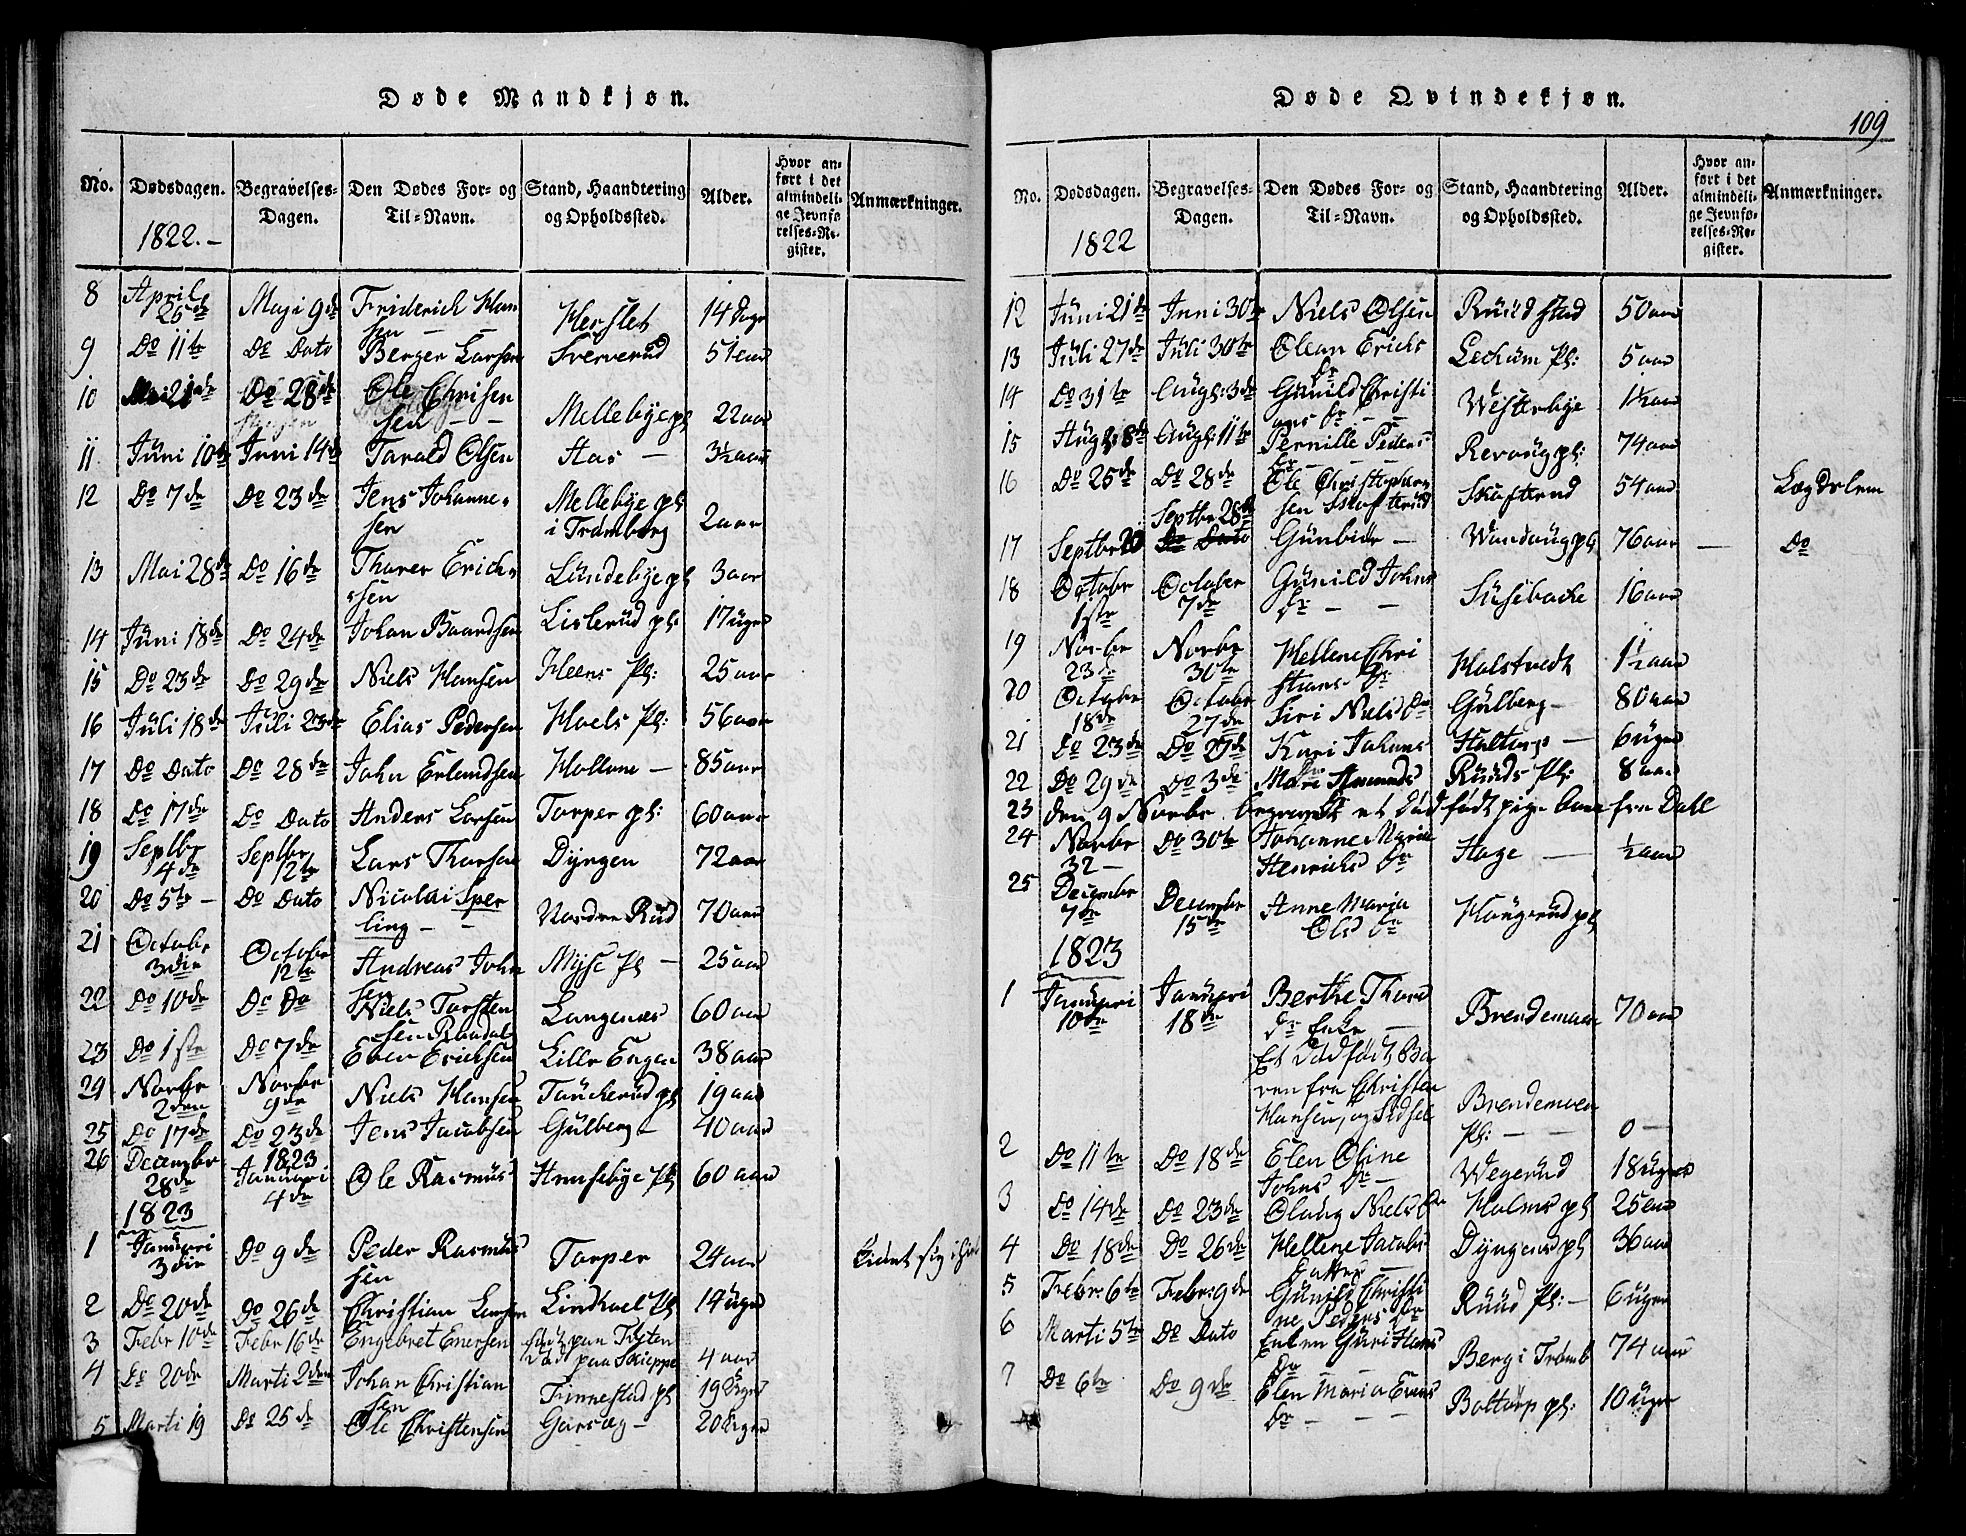 Døde Mandkjøn.
No. Dødsdagen. Begravelses-Dagen. Den Dødes For- og Til-Navn. Stand, Haandtering og Opholdssted. Alder. Hvor anført i det almindelige Jevnførelses-Register. Anmærkninger.
1822.
8 April 25de Maji 9de Friderich Han
sen Herslet 14 Dage
9 Do 11te Do Dato Berger Larsen Sververud 51 aar
10 Mai 21de Do 28de Ole Chrisen
sen Mellebye pl 22 aar
11 Juni 10de Juni 14de Tarald Olsen Aas 3½ aar
12 Do 7de Do 23de Jens Johanne-
sen Mellebye pl
i Tromborg 2 aar
13 Mai 28de Do 16de Thorer Erich-
sen Lundebye pl 3 aar
14 Juni 18de Do 24de Johan Baardsen Lislerud pl: 17 uger
15 Do 23de Do 29de Niels Hansen Heens Pl: 25 aar
16 Juli 18de Juli 23de Elias Pedersen Hoels Pl: 56 aar
17 Do Dato Do 28de John Erlandsen Hollene 85 aar
18 Do 17de Do Dato Anders Larsen Torper pl: 60 aar
19 Septbr 4de Septbr 12te Lars Thorsen Dyngen 72 aar
20 Do 5te Do Dato Nicolai Sper
ling Nordre Rud 70 aar
21 Octobr 3die October 12te Andreas John
sen Myse Pl 25 aar
22 Do 10de Do Do Niels Torsten
sen Langenes 60 aar
23 Do 1ste Do 7de Even Erichsen Lille Engen 38 aar
24 Novbr 2den Novbr 9de Niels Hansen Tuckerud pl 19 aar
25 Do 17de Do 23de Jens Jacobsen Gulberg 40 aar
26 Decembr 28de 1823 Januari 4de Ole Rasmus Hennsebye Pl 60 aar
1823
1 Januari 3die Do 9de Peder Rasmus
sen Torper 24 aar
2 Do 20de Do 26de Christian Larsen Lindhoel Pl 14 uger
3 Febr 10de Febr 16de Engebret Enersen
død paa Skieppe 4 aar
4 Do 20de Marti 2den Johan Christian
sen Finnestad pl 19 Uger
5 Marti 19 Do 25de Ole Christensen Garseg 20 Uger
Døde Qvindekjøn.
109
No. Dødsdagen. Begravelses-Dagen. Den Dødes For- og Til-Navn. Stand, Haandtering og Opholdssted. Alder. Hvor anført i det almindelige Jevnførelses-Register. Anmærkninger.
1822
12 Juni 21de Juni 30te Niels Olsen Ruudstad 50 aar
13 Juli 27de Juli 30te Olean Erichs
Dr Lechum Pl: 5 aar
14 Do 31te Augl: 3de Gunild Christi
ans Dr Westerbye 1½ aar
15 Augl: 8de Augl: 11te Pernille Peders
Dr Revoug pl: 74 aar
16 Do 25de Do 28de Ole Christophers
sen Skofterud Skofterud 54 aar Lægdslem
17 Septbr 20 Septbr 28de Do Dato Gunbiør Wandaug pl 76 aar Do
18 Octobr 1ste October 7de Gunild Johns
Dr Susebacke 16 aar
19 Novbr 23de Novbr 30te Hellene Chri
stians Dr Holstvedt 1½ aar
20 October 18de October 27de Siri Niels Dr Gulberg 80 aar
21 Do 23de Do 27de Kari Johans
Dr Haltorp 6 uger
22 Do 29de Do 3de Mari Amunds Ruuds Pl: 8 aar
23 den 9 Novbr begravet et Dødfødt pige barn fra Dahl
24 Novbr 32 Do 30te Johanne Maria
Henrichs Dr Hage ½ aar
25 Decembr 7de Decembr 15de Anne Maria
Ols Dr Haugerud pl
1823
1 Januari 10de Januari 18de Berthe Thord
Dr Enke Brendemoen 70 aar
Et Dødfødt Ba
ren fra Christen
Hansen, og Sidsel Brendemoen
Pl: 0
2 Do 11te Do 18de Elen Oline
Johns Dr Wegerud 18 uger
3 Do 14de Do 23de Olaug Niels Dr Holms pl 25 aar
4 Do 18de Do 26de Hellene Jacobs
Datter Dyngens pl 36 aar
5 Febr: 6te Febr: 9de Gunild Christi
ne Peders Dr Ruud Pl: 6 uger
6 Marti 5te Do Dato Enken Guri Hans
Dr Berg i Tromb 74 aar
7 Do 6te Do 9de Elen Maria Evens
Dr Boltorp pl: 10 uger